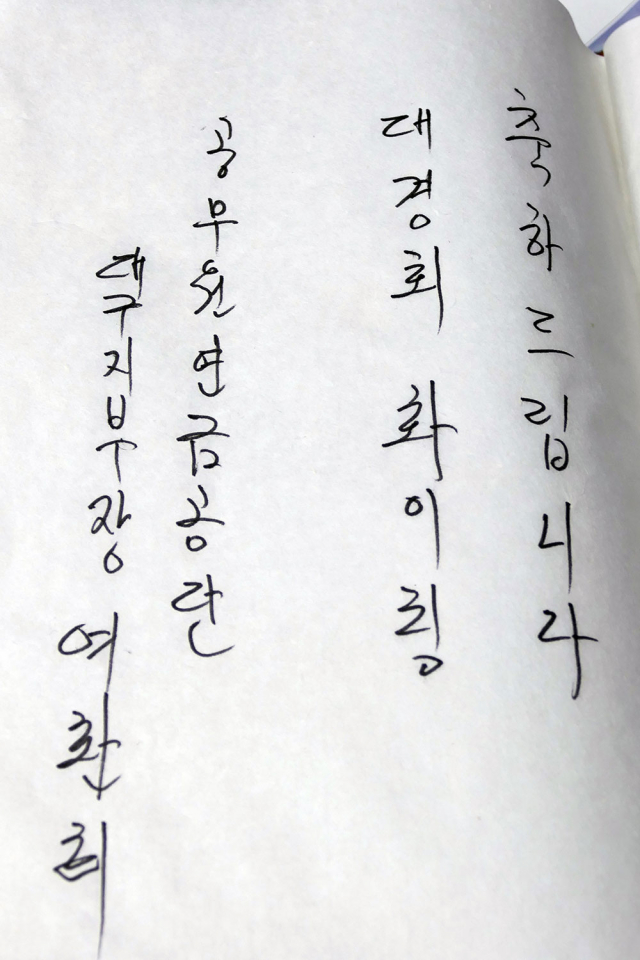 축하드립니다
대경회 화이팅
공무원연금공단
대구지부장